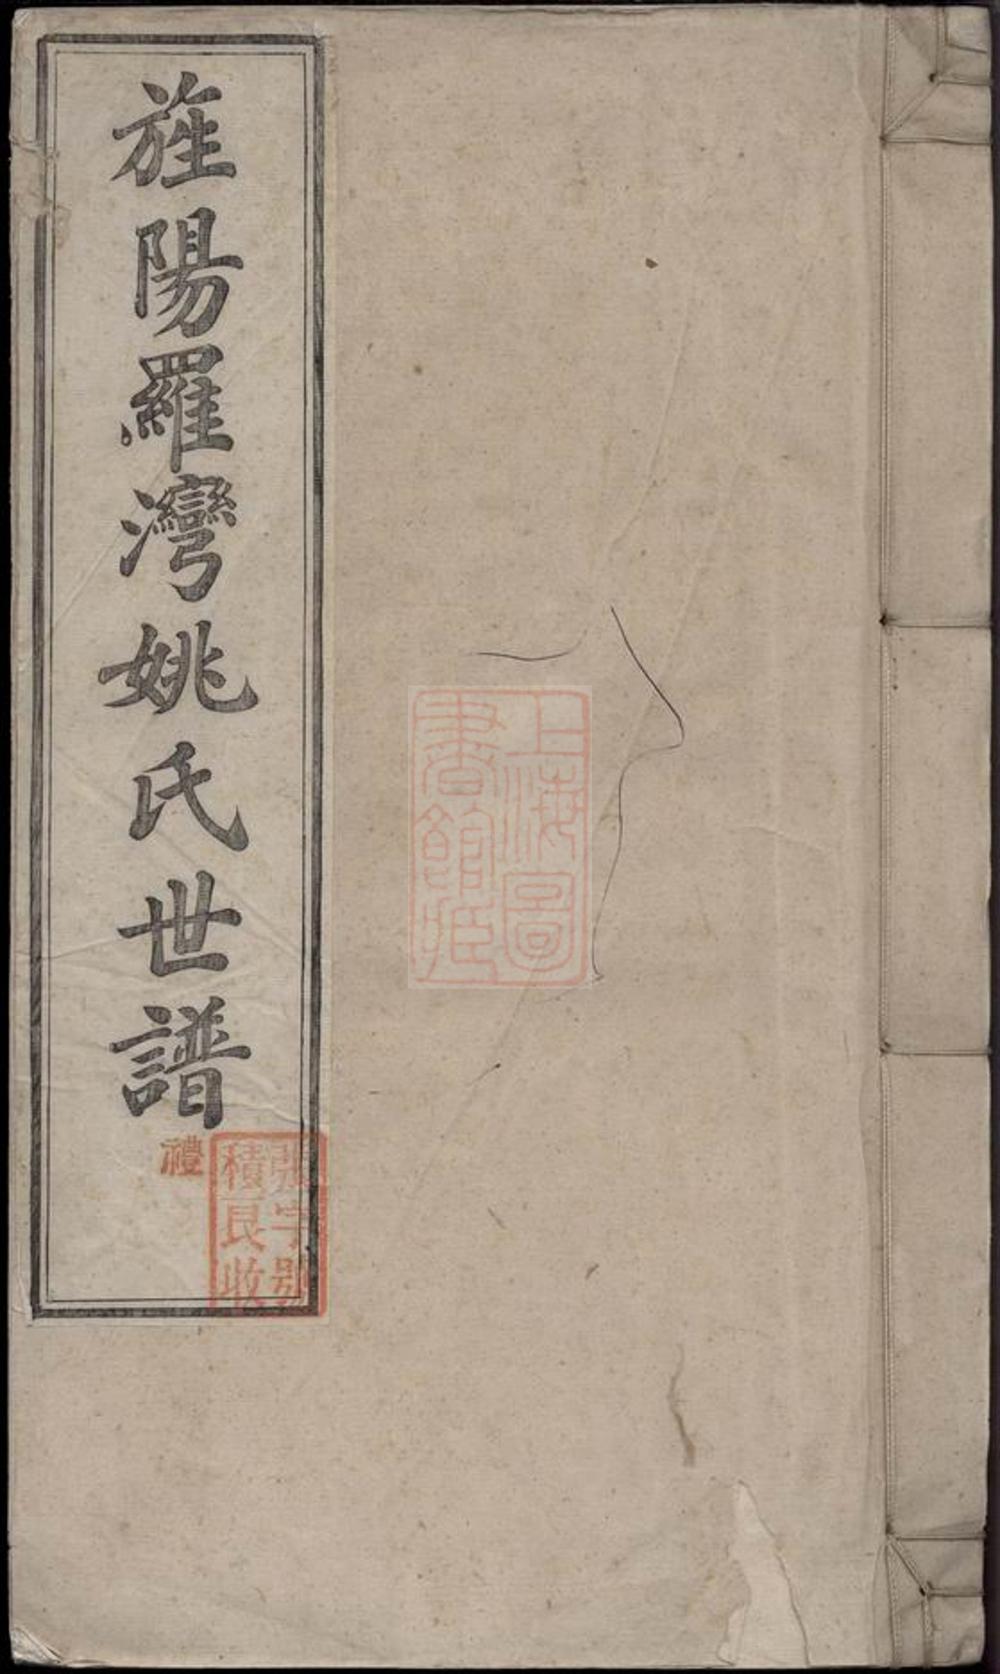 旌陽羅灣姚氏世譜
禮
張字號
積艮收
上海圖
書館藏